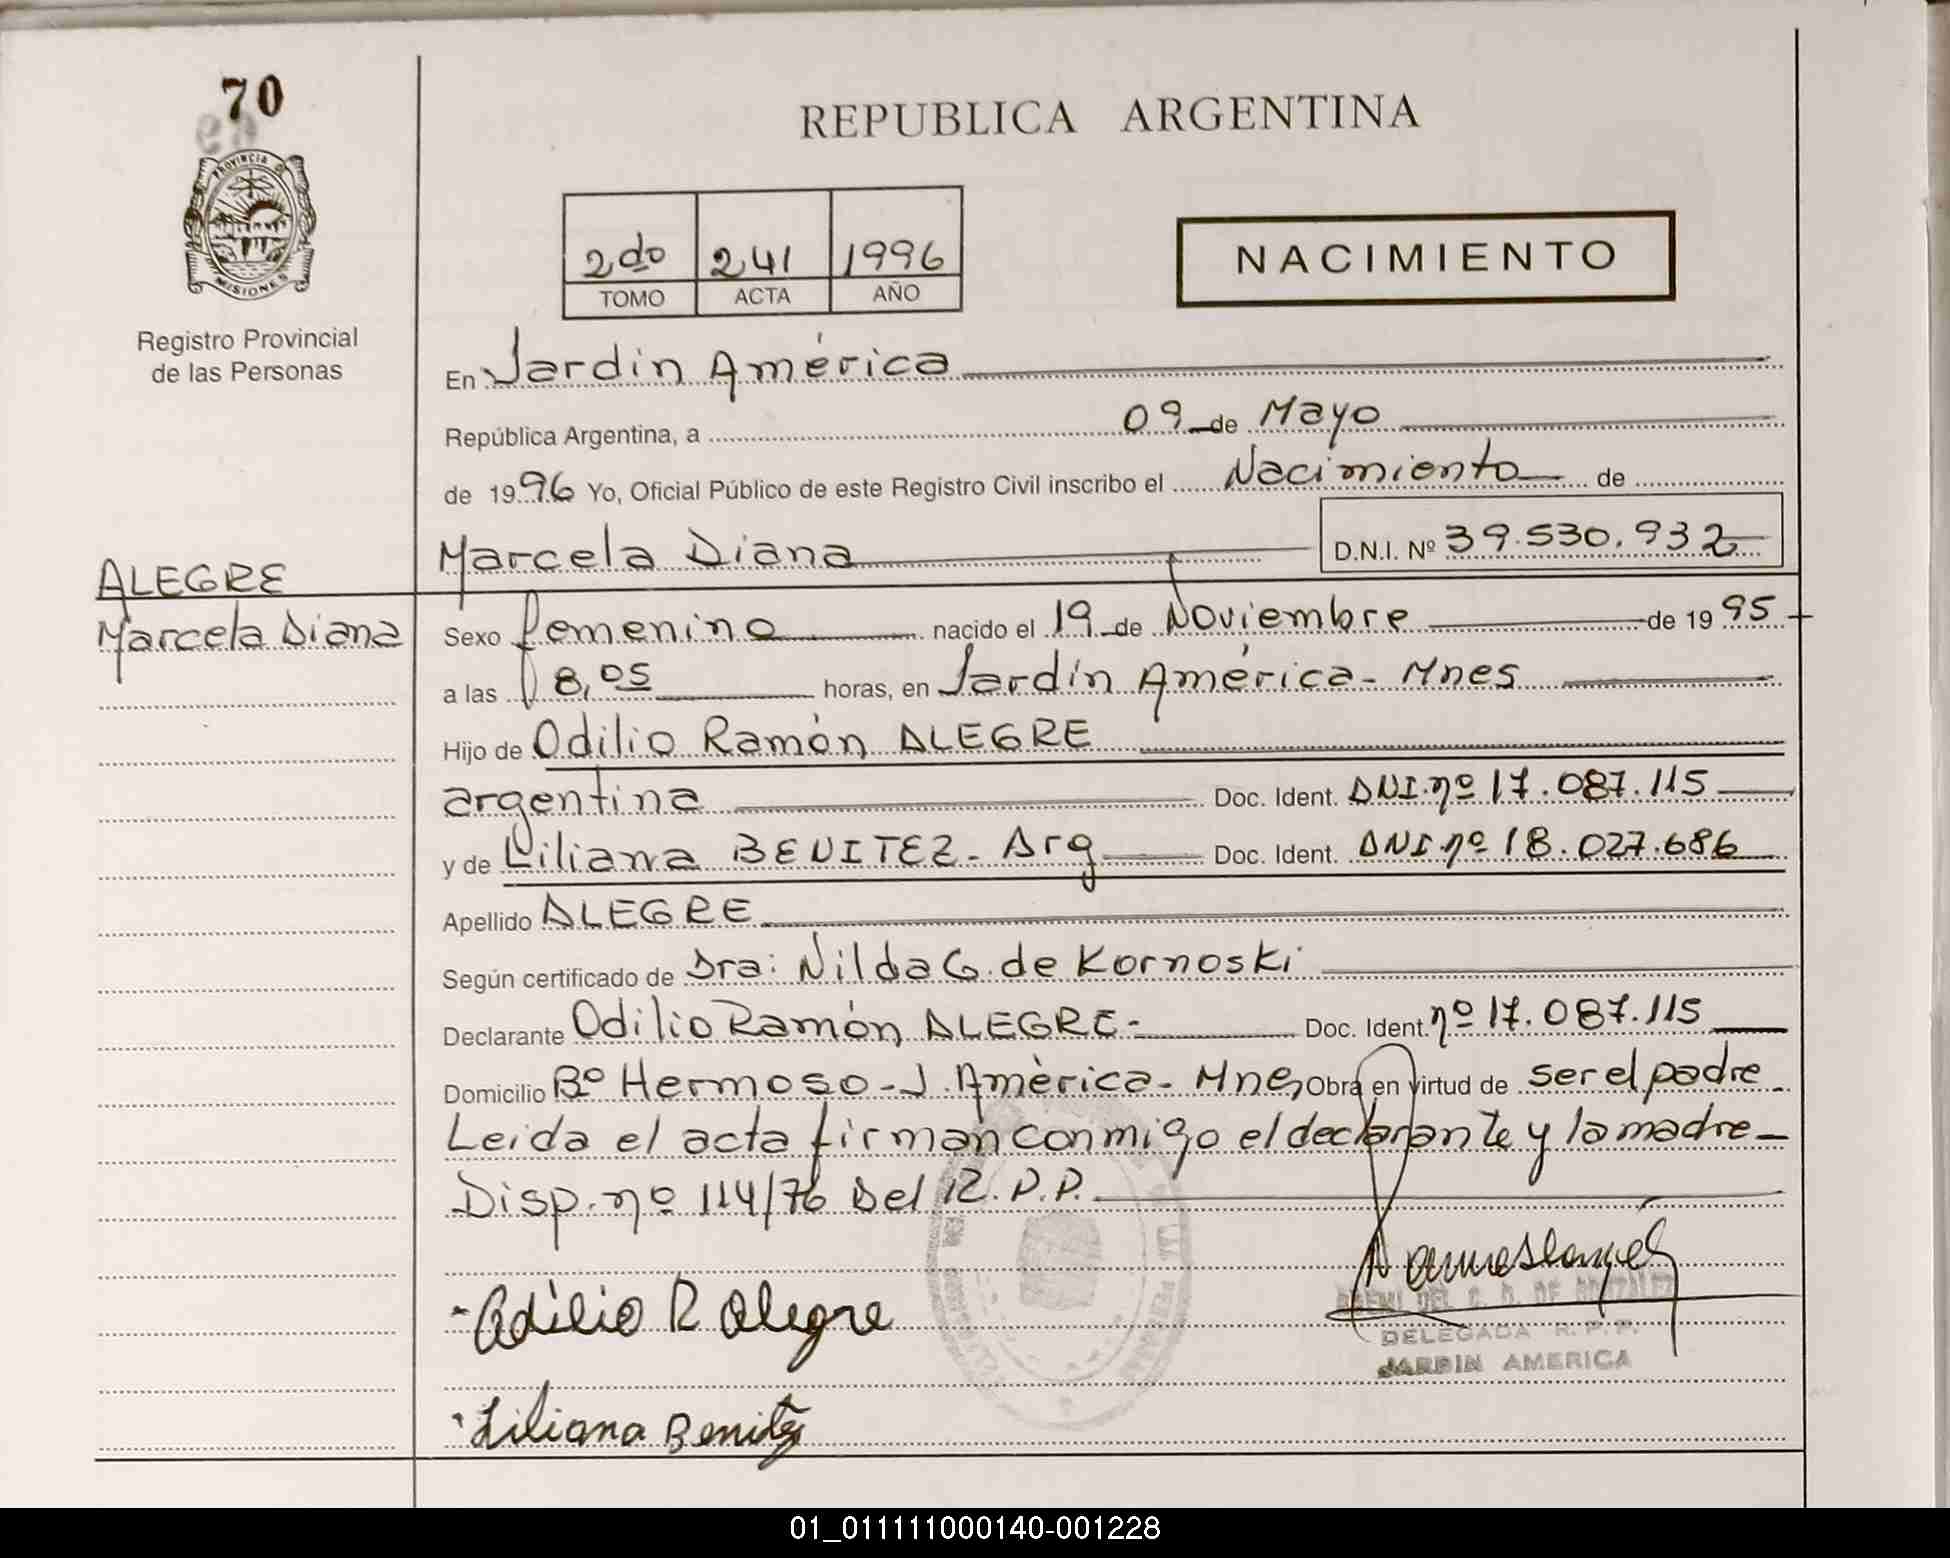 70
REPUBLICA ARGENTINA
PROVINCIA DE
MISIONES
Registro Provincial
de las Personas
2do 241 1996
TOMO ACTA AÑO
NACIMIENTO
En Jardín América
República Argentina, a 09 de Mayo
de 1996 Yo, Oficial Público de este Registro Civil inscribo el Nacimiento de
Marcela Diana D.N.I. Nº 39.530.932
ALEGRE
Marcela Diana
Sexo femenino nacido el 19 de Noviembre de 1995
a las 8,05 horas, en Jardín América - Mnes
Hijo de Odilio Ramón ALEGRE
argentina Doc. Ident. DNI.nº 17.087.115
y de Liliana BENITEZ - Arg Doc. Ident. DNI.nº 18.027.686
Apellido ALEGRE
Según certificado de Dra: Nilda G. de Kornoski
Declarante Odilio Ramón ALEGRE - Doc. Ident. nº 17.087.115
Domicilio Bº Hermoso - J. América - Mnes Obra en virtud de ser el padre
Leida el acta firman conmigo el declarante y la madre
Disp. nº 114/76 Del R.P.P.
Odilio R Alegre
DELEGADA R.P.P.
JARDIN AMERICA
Liliana Benitez
01_011111000140-001228